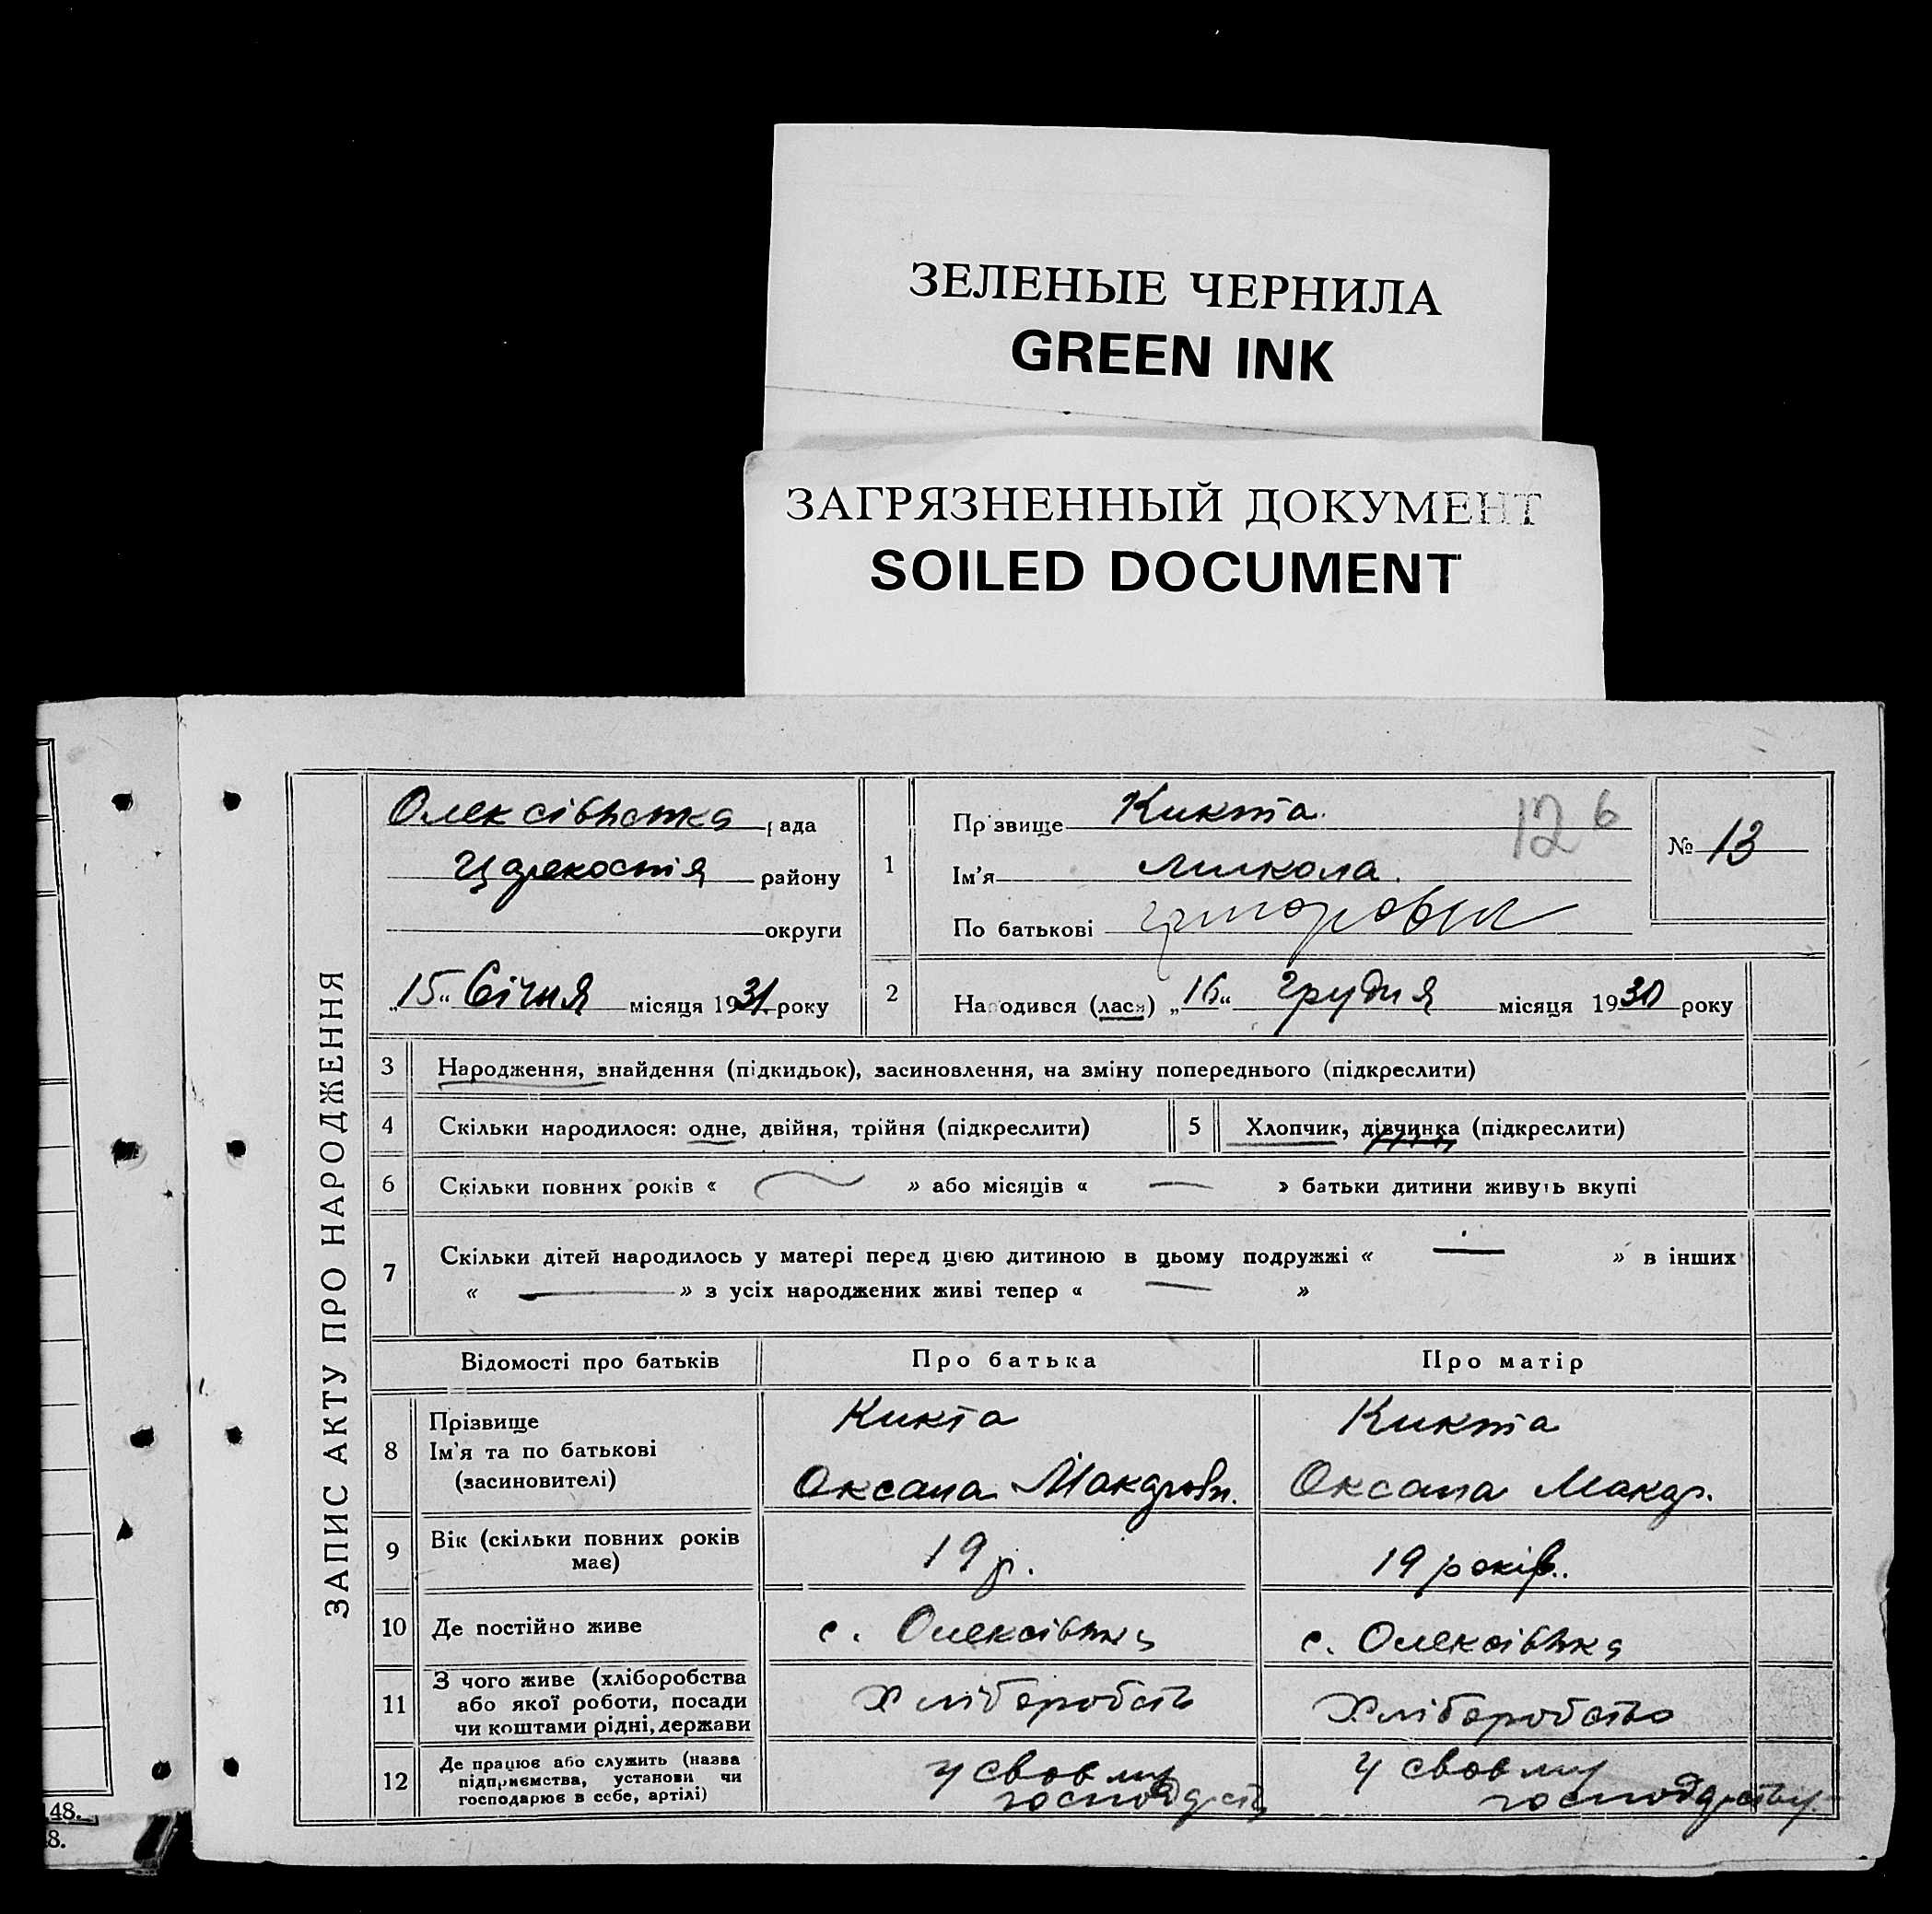 ЗЕЛЕНЫЕ ЧЕРНИЛА
GREEN INK
ЗАГРЯЗНЕННЫЙ ДОКУМЕНТ
SOILED DOCUMENT
ЗАПИС АКТУ ПРО НАРОДЖЕННЯ
рада
району
округи
„15“ Січня місяця 1931 року
1
Прізвище Кикта
Ім'я Микола.
По батькові Григорович
126
№ 13
2
Народився (лася) „16“ Грудня місяця 1930 року
3 Народження, знайдення (підкидьок), засиновлення, на зміну попереднього (підкреслити)
4 Скільки народилося: одне, двійня, трійня (підкреслити)
5 Хлопчик, дівчинка (підкреслити)
6 Скільки повних років « — » або місяців « — » батьки дитини живуть вкупі
7 Скільки дітей народилось у матері перед цією дитиною в цьому подружжі « — » в інших
« — » з усіх народжених живі тепер « — »
Відомості про батьків Про батька Про матір
8 Прізвище
Ім'я та по батькові
(засиновителі)
Кикта
Оксана Макаров.
Кикта
Оксана Макар.
9 Вік (скільки повних років
має)
19 р.
19 років.
10 Де постійно живе
с. Олексівка
с. Олексівка
11 З чого живе (хліборобства
або якої роботи, посади
чи коштами рідні, держави
Хліборобств
Хліборобство
12 Де працює або служить (назва
підприємства, установи чи
господарює в себе, артілі)
у своєму
господарств
у своєму
господарству.
48.
8.